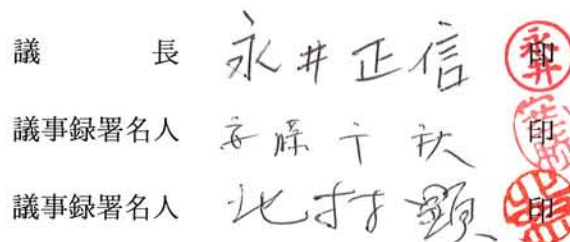 議長 永井正信 印
議事録署名人 安藤千秋 印
議事録署名人 北村顕 印